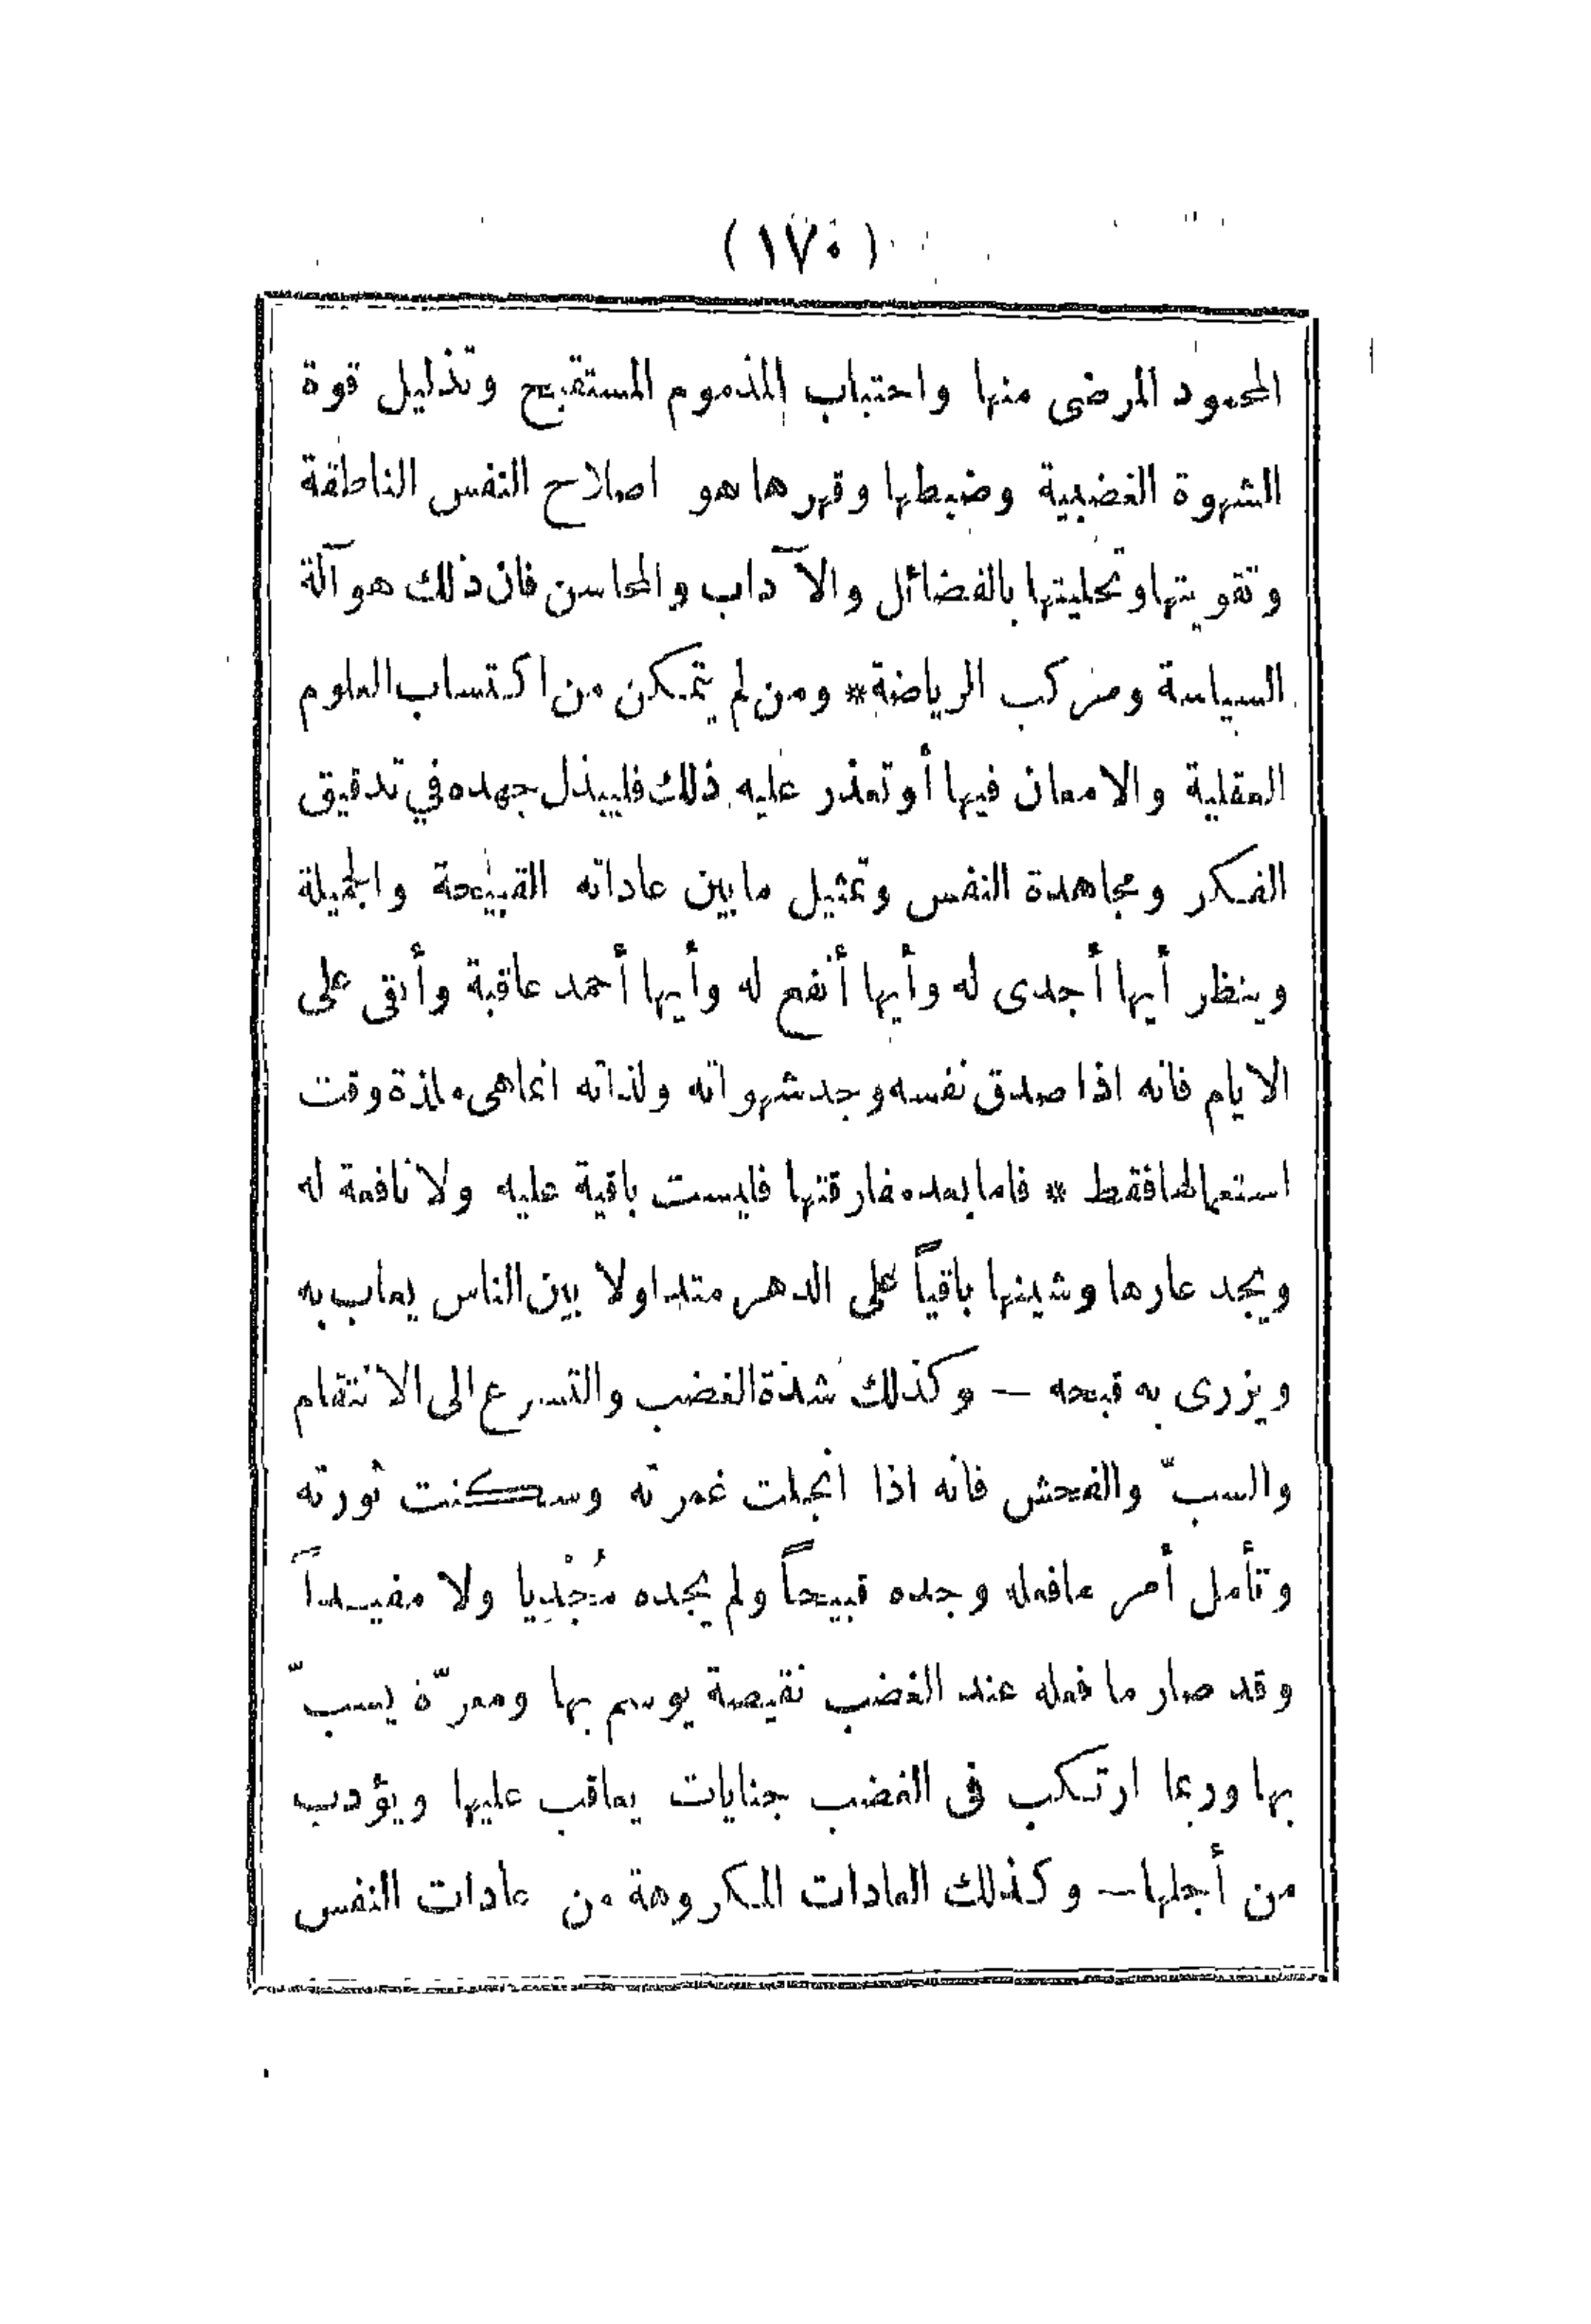 (١٧٠)
المحمود المرضى منها واجتناب المذموم المستقبح وتذليل قوة
الشهوة الغضبية وضبطها وقهرها هو اصلاح النفس الناطقة
وتقويتها وتحليتها بالفضائل والآداب والمحاسن فان ذلك هو آلة
السياسة ومركب الرياضة * ومن لم يتمكن من اكتساب العلوم
العقلية والامعان فيها أو تعذر عليه ذلك فليبذل جهده في تدقيق
الفكر ومجاهدة النفس وتمثيل مابين عاداته القبيحة والجميلة
وينظر أيها أجدى له وأيها أنفع له وأيها أحمد عاقبة وأبقى على
الايام فانه اذا صدق نفسه وجد شهواته ولذاته انما هى ملذة وقت
استعمالها فقط * فاما بعد مفارقتها فليست باقية عليه ولا نافعة له
ويجد عارها وشينها باقياً على الدهر متداولا بين الناس يعاب به
ويزرى به قبحه — وكذلك شدة الغضب والتسرع الى الانتقام
والسبّ والفحش فانه اذا انجلت غمرته وسكنت ثورته
وتأمل أمر مافعله وجده قبيحاً ولم يجده مُجْدِيا ولا مفيداً
وقد صار ما فعله عند الغضب نقيصة يوسم بها ومعرّة يسبّ
بها وربما ارتكب فى الغضب جنايات يعاقب عليها ويؤدب
من أجلها — وكذلك العادات المكروهة من عادات النفس